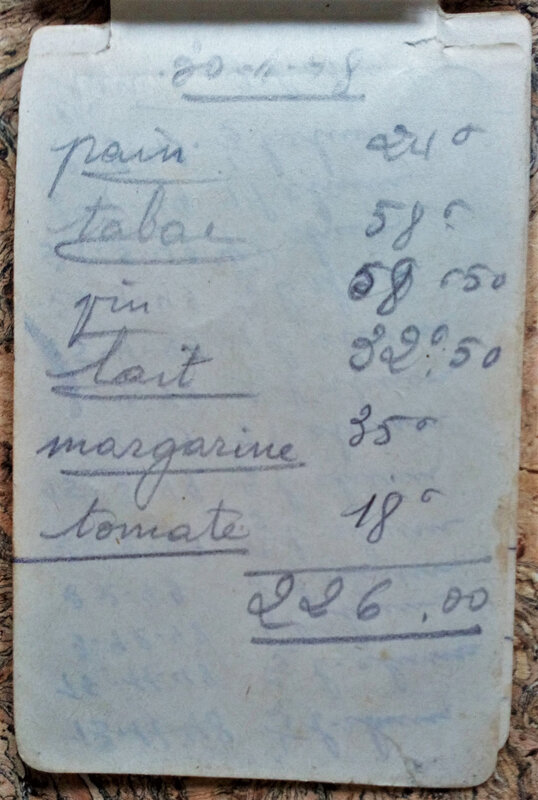 pain 24 °
tabac 58 °
vin 58 °50
lait 32°.50
margarine 35 °
tomate 18 °
226.00